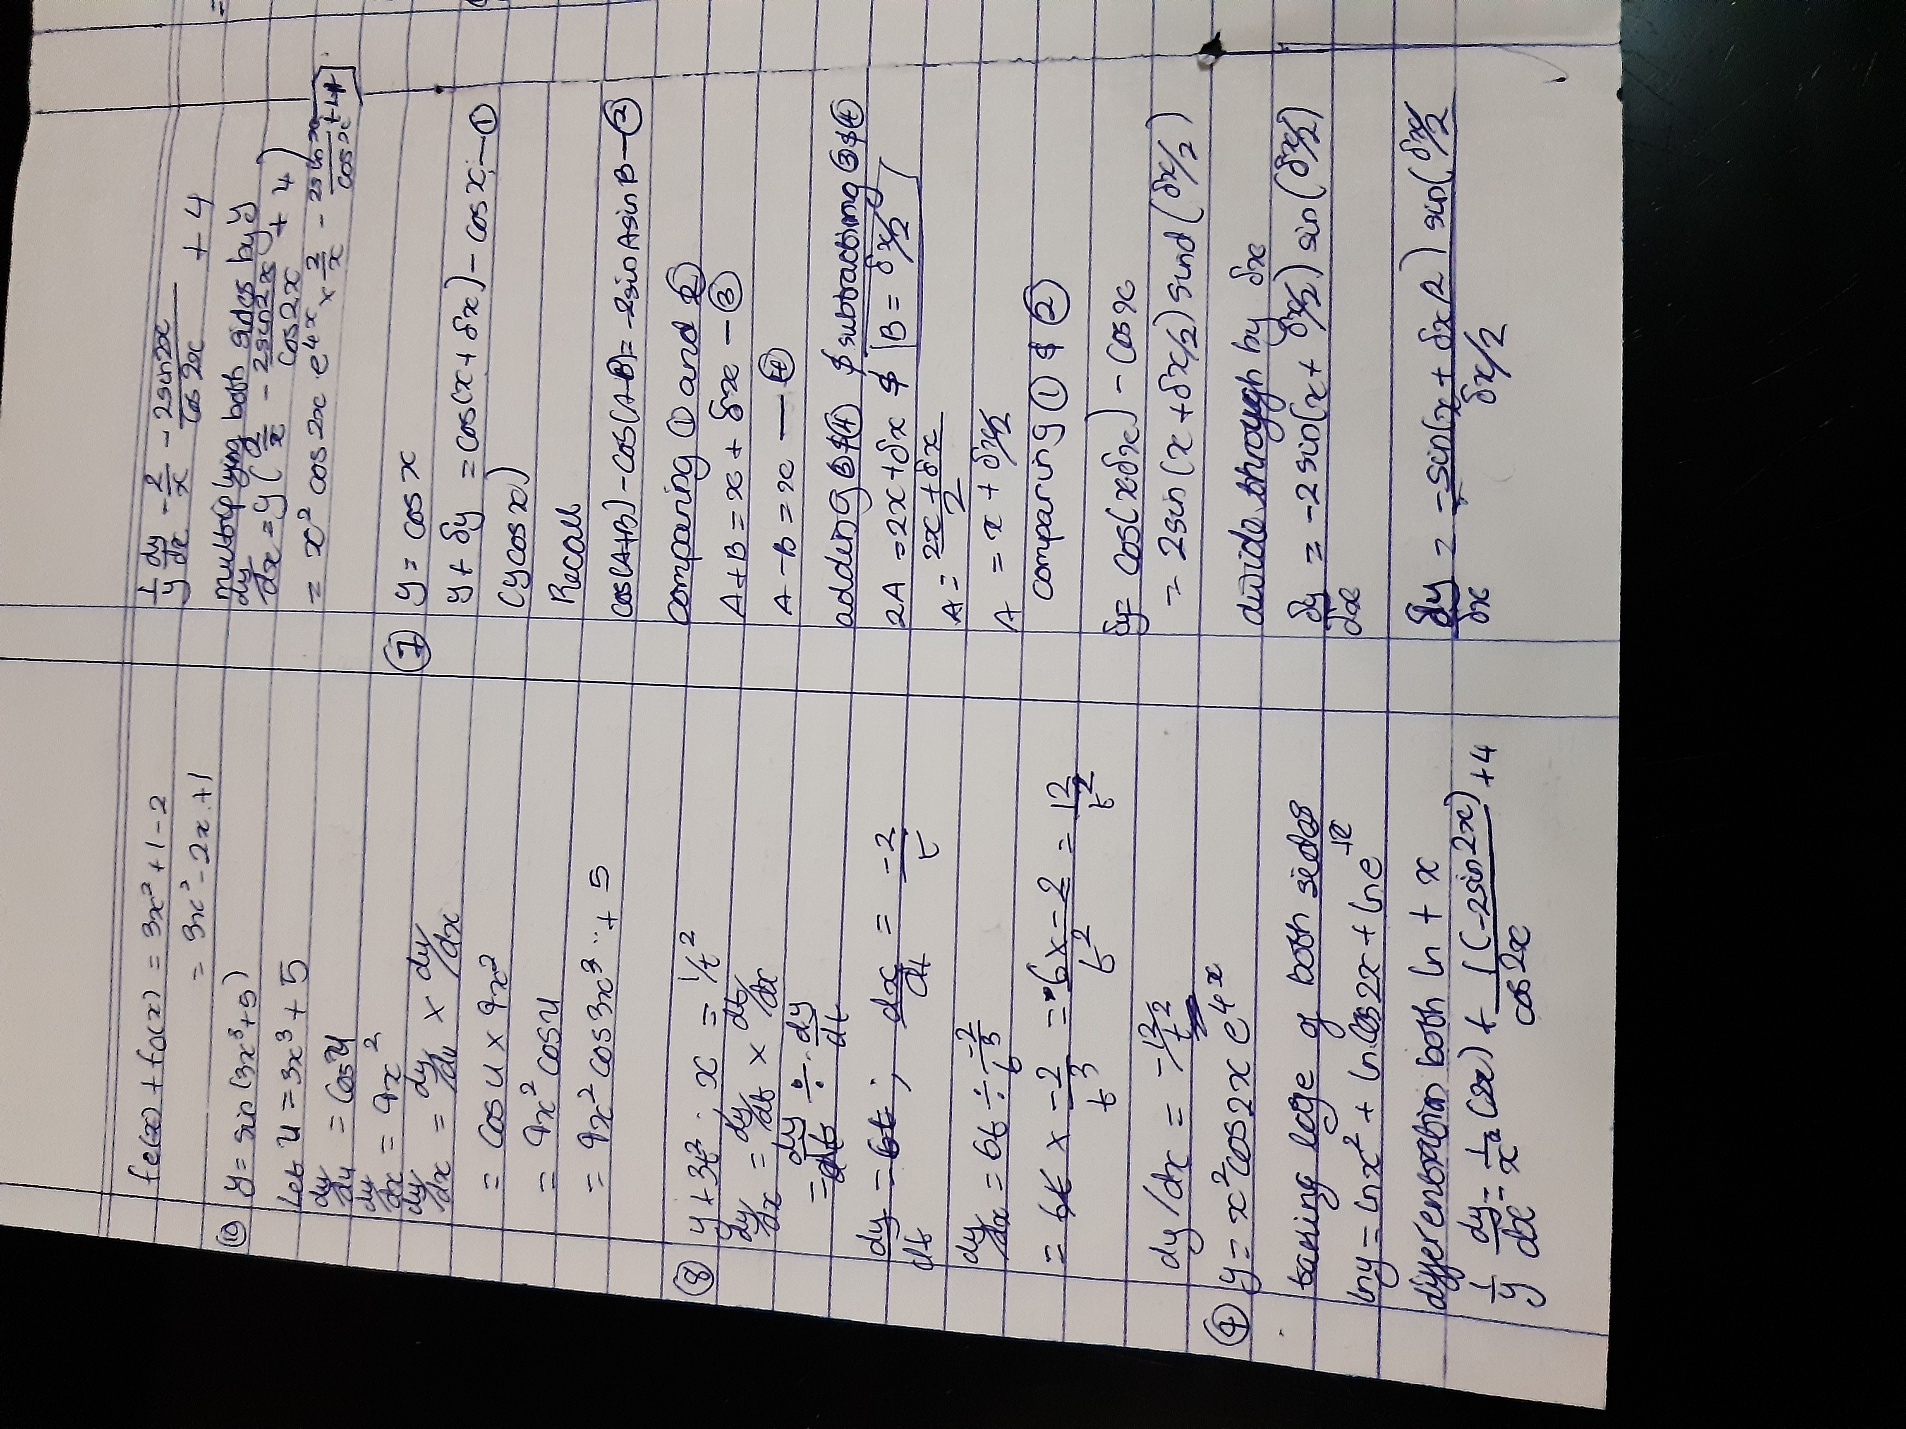 fe(x) + fo(x) = 3x² + 1 - 2
= 3x² - 2x + 1
⑩ y = sin(3x³+5)
Let u = 3x³ + 5
dy/du = cos u
dy/dx = 9x²
dy/dx = dy/du × dy/dx
= cos u × 9x²
= 9x² cos u
= 9x² cos 3x³ + 5
⑧ y + 3t² ; x = 1/t²
dy/dx = dy/dt × dt/dx
= dy/dt ÷ dy/dt
dy/dt = 6t ; dx/dt = -2/t
dy/dx = 6t ÷ -2/t³
= 6t × -2/t³ = 6x-2/t² = 12/t²
dy/dx = -12/t²
④ y = x² cos 2x e^4x
taking loge of both sides
ln y = ln x² + ln cos 2x + ln e
differentiation both ln + x
1/y dy/dx = 1/x² (2x) + 1(-2sin2x)/cos 2x + 4
1/y dy/dx = 2/x - 2sin2x/cos 2x + 4
multiplying both sides by y
dy/dx = y(2/x - 2sin2x/cos2x + 4)
= x² cos 2x e^4x × 2/x - 2sin x/cos x + 4
⑦ y = cos x
y + δy = cos(x + δx) - cos x - ①
(y cos x)
Recall
cos(A+B) - cos(A-B) = -2sin A sin B - ②
comparing ① and ②
A+B = x + δx - ③
A-B = x - ④
adding ③ $ ④ $ subtracting ③ $ ④
2A = 2x + δx $ B = δx/2
A = 2x + δx/2
A = x + δx/2
comparing ① $ ②
δy = cos(xδx) - cos x
= 2sin(x + δx/2) sind(δx/2)
divide through by δx
δy/dx = -2 sin(x + δx/2) sin(δx/2)
δy/δx = -sin(x + δx/2) sin(δx/2
δx/2